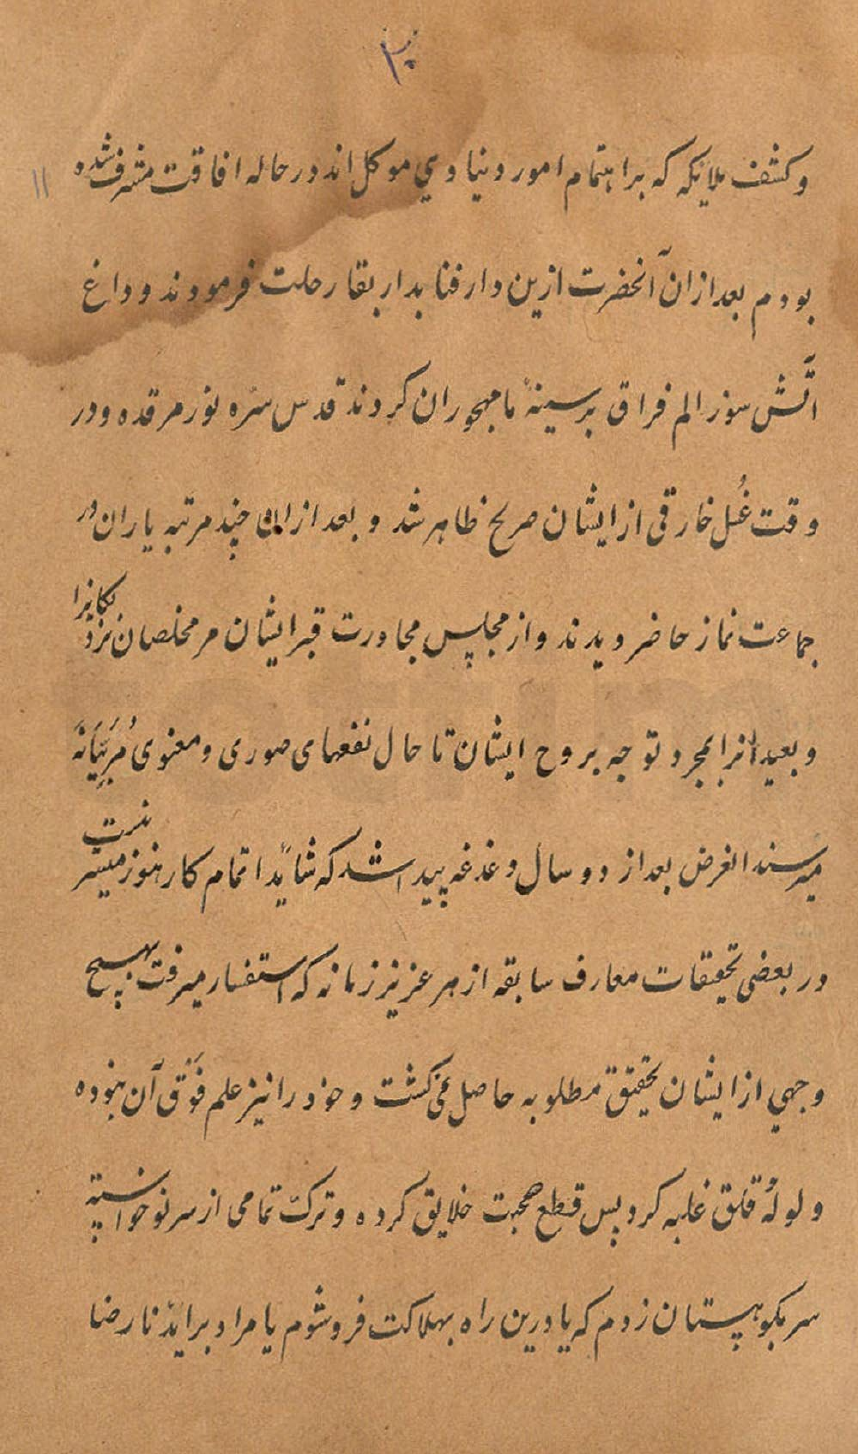 ۲۰
۱۱
وکشف ملایکه که براهتمام امور دنیاوی موکل اند در حاله افاقت مشرف شده
بودم بعد ازان آنحضرت ازین دار فنا بدار بقا رحلت فرمودند و داغ
آتش سوز الم فراق بر سینهٔ ما مهجوران کردند قدس سره نور مرقده و در
وقت غُسل خارقی از ایشان صریح ظاهر شد و بعد از آن چند مرتبه یاران در
جماعت نماز حاضر دیدند و از مجلس مجاورت قبر ایشان مر مخلصان نزد یکانرا
و بعیدانرا بمجرد توجه بروح ایشان تا حال نفعهای صوری و معنوی مُربّیانه
میرسند الغرض بعد از دو سال دغدغه پیدا شد که شاید اتمام کار هنوز میسر نیست
در بعضی تحقیقات معارف سابقه از هر عزیز زمانه که استفسار میرفت بهیچ
وجهی از ایشان تحقق مطلوبه حاصل نمی گشت و خود را نیز علم فَوق آن نبوده
ولولهٔ قلق غلبه کرد پس قطع صحبت خلایق کرده و ترک تمامی از سر نو خواسته
سر بکوهستان زدم که یا درین راه بهلاکت فرو شوم یا مراد براید نا رضا